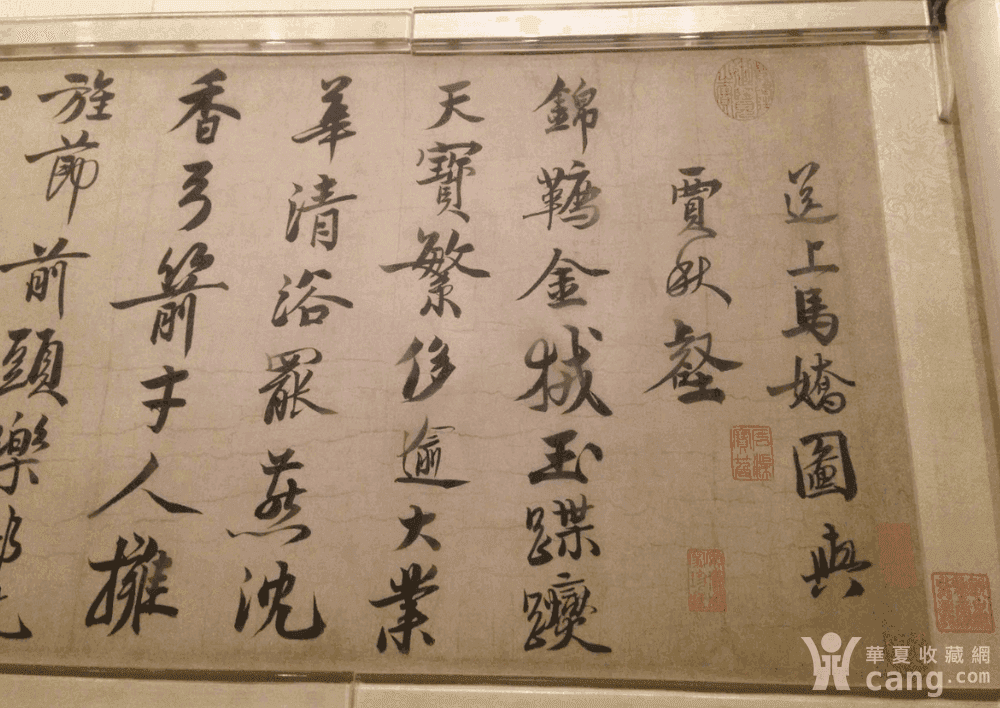 送上馬嬌圖與
賈秋壑
錦韉金玉蹀躞
天寶繁侈逾大業
華清浴罷燕沈
香弓箭才人擁
旌節前頭樂
華夏收藏網
cang.com